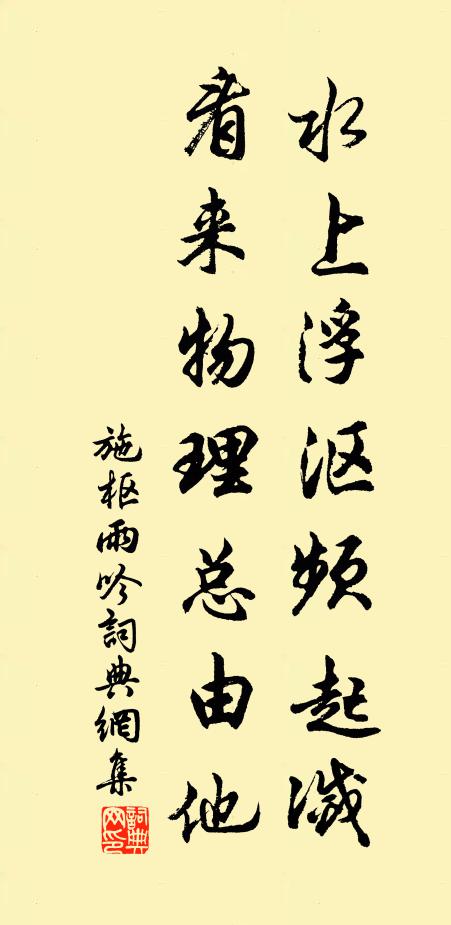 水上浮沤频起滅
看来物理总由他
施枢雨吟詞典網集
詞典网印